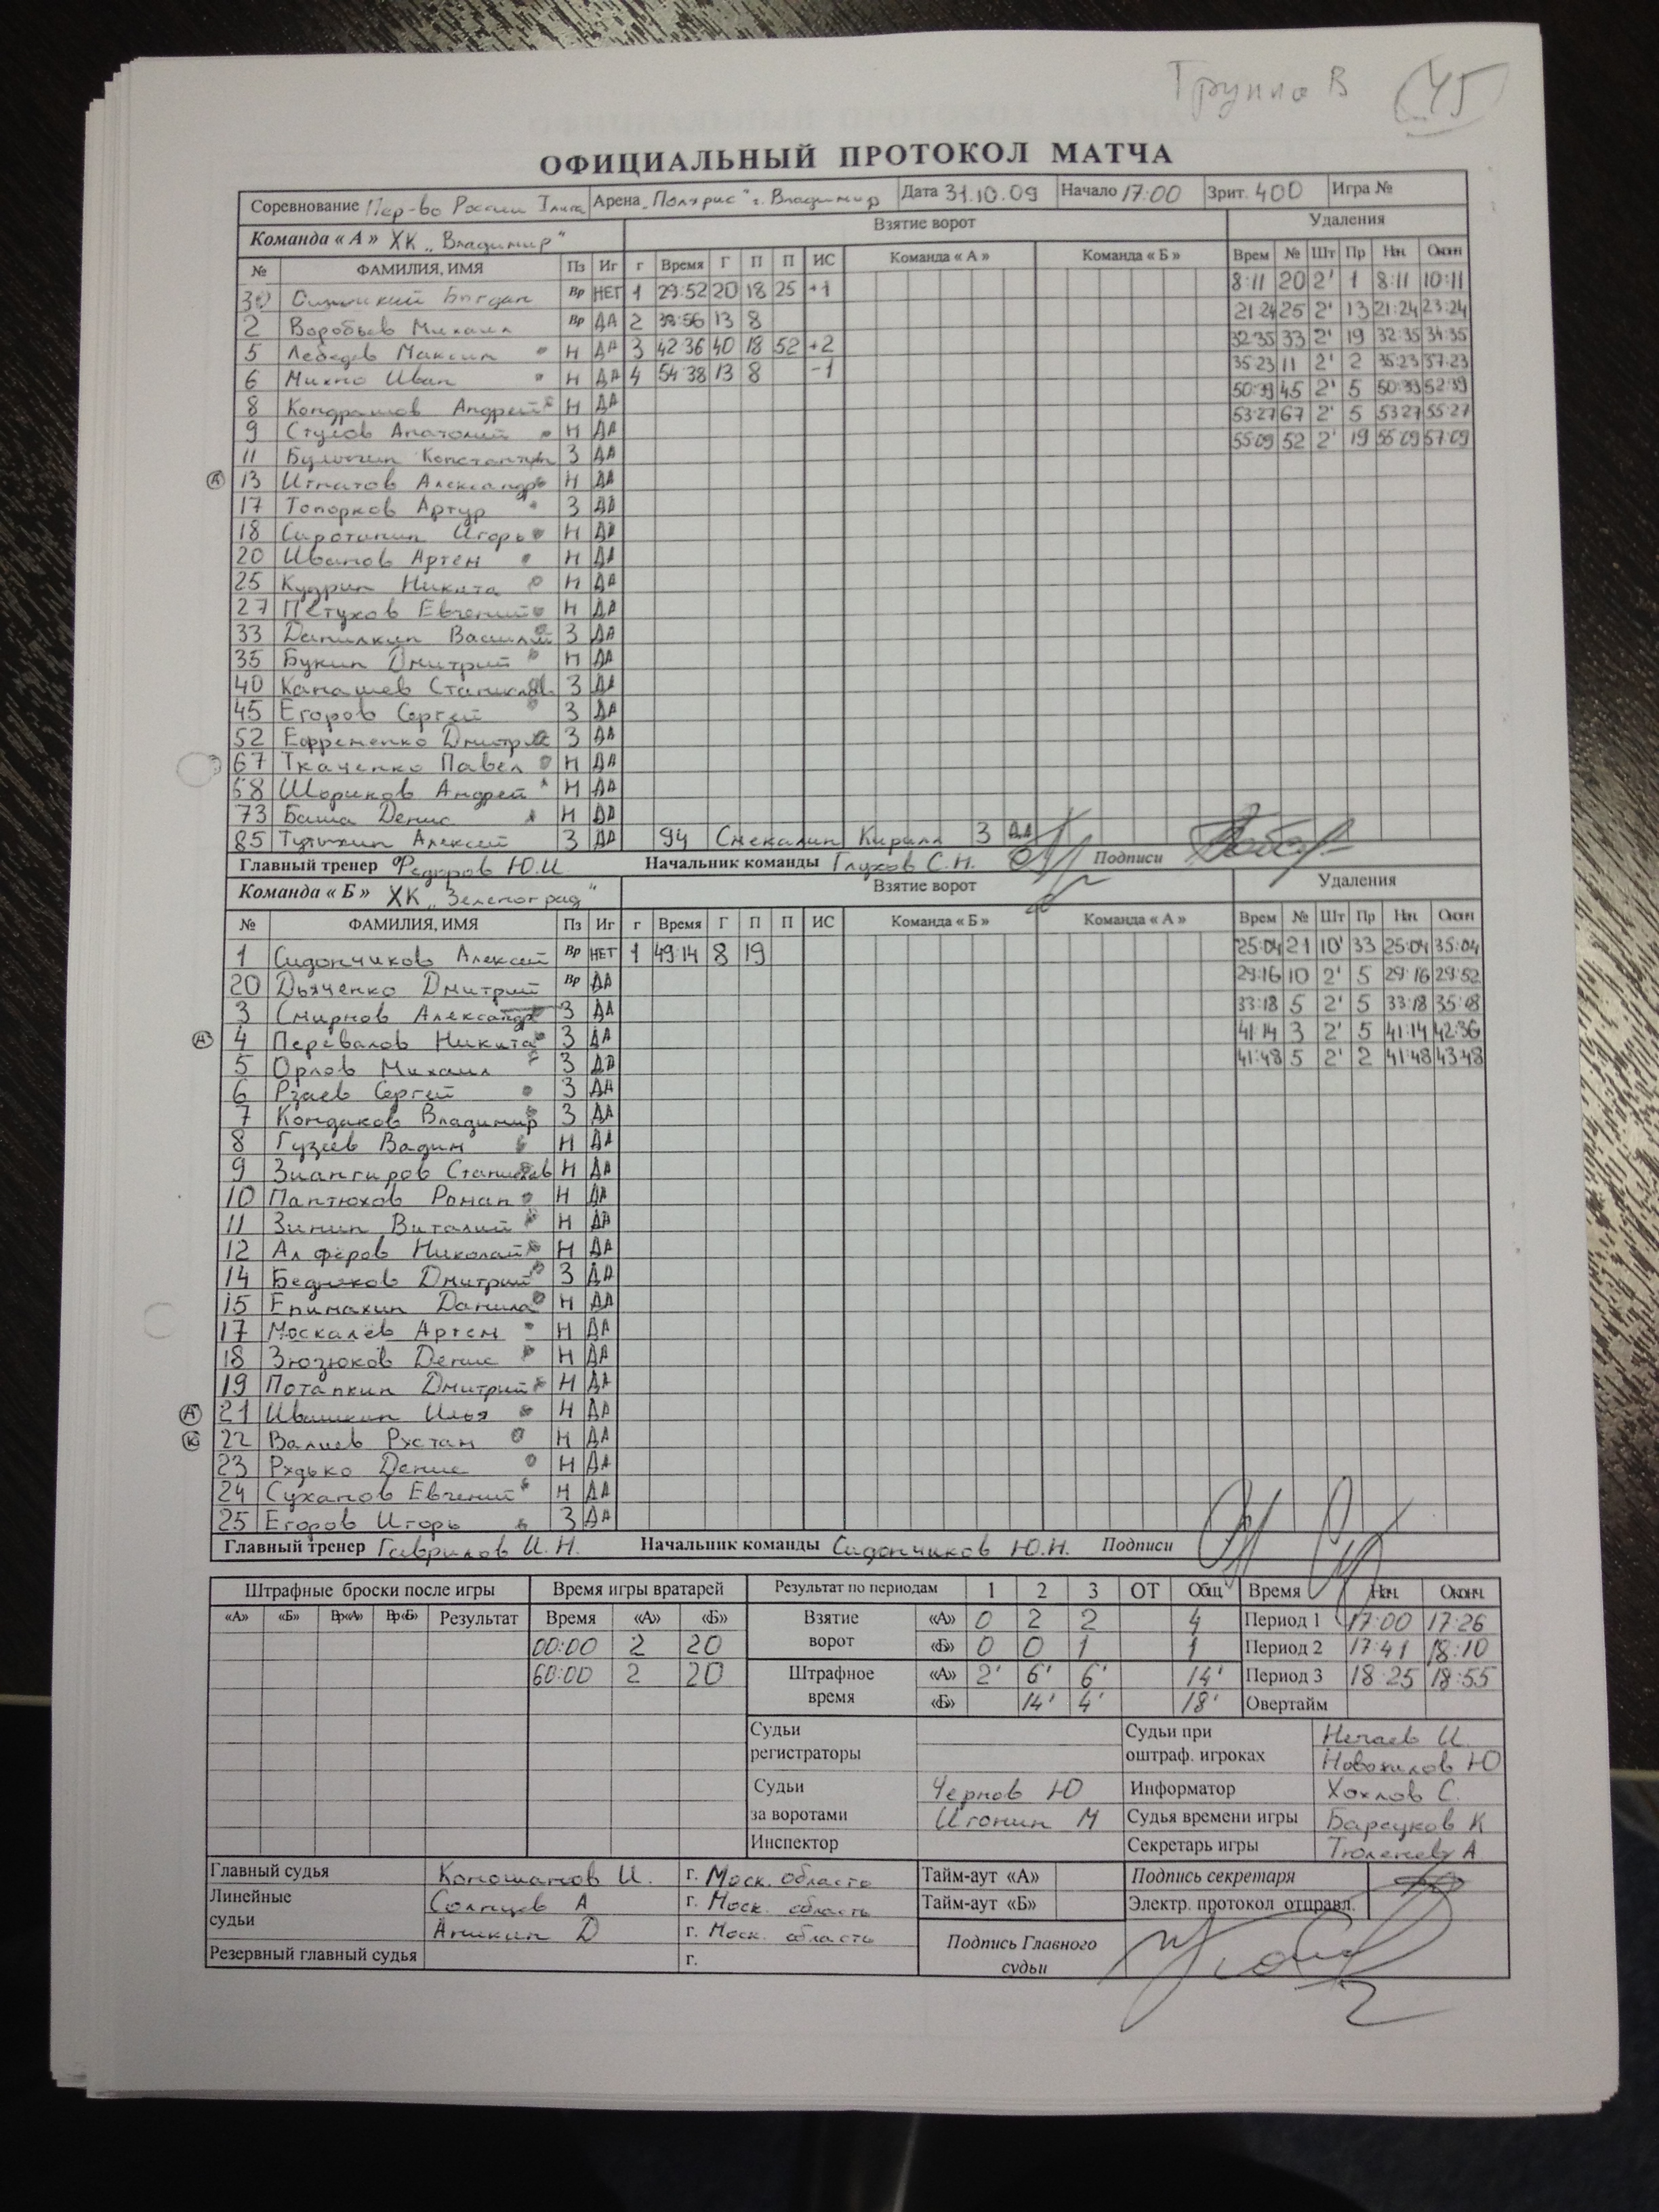 Группа В 45
ОФИЦИАЛЬНЫЙ ПРОТОКОЛ МАТЧА
Соревнование Пер-во России Арена „Полярис“ г. Владимир Дата 31.10.09 Начало 17:00 Зрит. 400 Игра №
Команда « А » ХК „Владимир“ Взятие ворот Удаления
№ ФАМИЛИЯ, ИМЯ Пз Иг г Время Г П П ИС Команда « А » Команда « Б » Врем № Шт Пр Нач. Оконч
30 Богдан Вр НЕТ 1 29:52 20 18 25 +1 8:11 20 2' 1 8:11 10:11
2 Воробьев Михаил Вр ДА 2 38:56 13 8 21:24 25 2' 13 21:24 23:24
5 Лебедев Максим Н ДА 3 42:36 40 18 52 +2 32:35 33 2' 19 32:35 34:35
6 Михно Иван Н ДА 4 54:38 13 8 -1 35:23 11 2' 2 35:23 37:23
8 Кондрашов Андрей Н ДА 50:39 45 2' 5 50:39 52:39
9 Стулов Анатолий Н ДА 53:27 67 2' 5 53:27 55:27
11 Булычкин Константин З ДА 55:09 52 2' 19 55:09 57:09
А 13 Игнатов Александр Н ДА
17 Топорков Артур З ДА
18 Сиротинин Игорь Н ДА
20 Иванов Артем Н ДА
25 Кудрин Никита Н ДА
27 Петухов Евгений Н ДА
33 Данилкин Василий З ДА
35 Букин Дмитрий Н ДА
40 Канашев Станислав З ДА
45 Егоров Сергей З ДА
52 Ефременко Дмитрий З ДА
67 Ткаченко Павел Н ДА
68 Шориков Андрей Н ДА
73 Баша Денис Н ДА
85 Алексей З ДА 94 Смекалин Кирилл З ДА
Главный тренер Федоров Ю.И. Начальник команды Глухов С.Н. Подписи
Команда « Б » ХК „Зеленоград“ Взятие ворот Удаления
№ ФАМИЛИЯ, ИМЯ Пз Иг г Время Г П П ИС Команда « Б » Команда « А » Врем № Шт Пр Нач. Оконч
1 Сидончиков Алексей Вр НЕТ 1 49:14 8 19 25:04 21 10' 33 25:04 35:04
20 Дьяченко Дмитрий Вр ДА 29:16 10 2' 5 29:16 29:52
3 Смирнов Александр З ДА 33:18 5 2' 5 33:18 35:18
А 4 Перевалов Никита З ДА 41:14 3 2' 5 41:14 42:36
5 Орлов Михаил З ДА 41:48 5 2' 2 41:48 43:48
6 Рзаев Сергей З ДА
7 Кондаков Владимир З ДА
8 Гузеев Вадим Н ДА
9 Зиангиров Станислав Н ДА
10 Пантюхов Роман Н ДА
11 Зинин Виталий Н ДА
12 Алферов Николай Н ДА
14 Бедняков Дмитрий З ДА
15 Епимахин Данила Н ДА
17 Москалёв Артем Н ДА
18 Зюзюков Денис Н ДА
19 Потапкин Дмитрий Н ДА
А 21 Ивашкин Илья Н ДА
К 22 Валиев Рустам Н ДА
23 Рудько Денис Н ДА
24 Суханов Евгений Н ДА
25 Егоров Игорь З ДА
Главный тренер Гаврилов И.Н. Начальник команды Сидончиков Ю.Н. Подписи
Штрафные броски после игры Время игры вратарей Результат по периодам 1 2 3 ОТ Общ Время Нач. Оконч.
«А» «Б» Вр«А» Вр«Б» Результат Время «А» «Б» Взятие ворот «А» 0 2 2 4 Период 1 17:00 17:26
00:00 2 20 «Б» 0 0 1 1 Период 2 17:41 18:10
60:00 2 20 Штрафное время «А» 2' 6' 6' 14' Период 3 18:25 18:55
«Б» 14' 4' 18' Овертайм
Судьи регистраторы Судьи при оштраф. игроках Нечаев И.
Новожилов Ю
Судьи за воротами Чернов Ю Информатор Хохлов С.
Игонин М Судья времени игры Барсуков К
Инспектор Секретарь игры Тюленев А
Главный судья Коношанов И. г. Моск. область Тайм-аут «А» Подпись секретаря
Линейные судьи Солнцев А г. Моск. область Тайм-аут «Б» Электр. протокол отправл.
Аникин Д г. Моск. область Подпись Главного судьи
Резервный главный судья г.